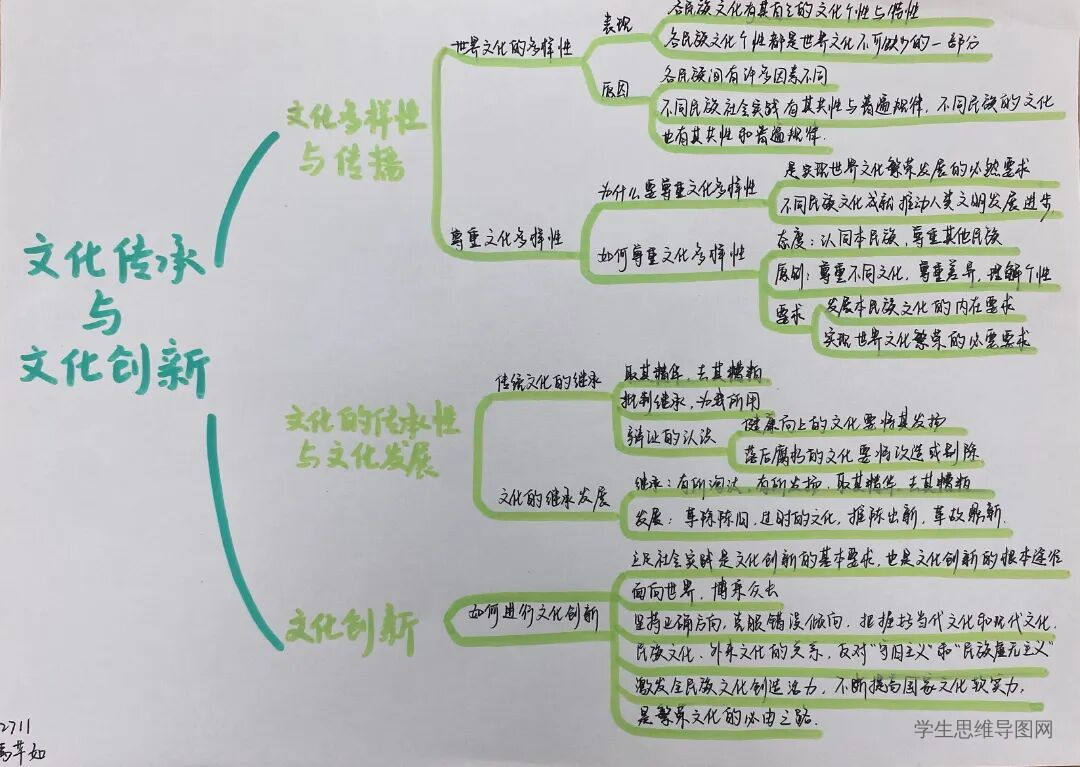 文化传承
与
文化创新
文化多样性
与传播
世界文化的多样性
表现
各民族文化有其自己的文化个性与特性
各民族文化个性都是世界文化不可缺少的一部分
原因
各民族间有许多因素不同
不同民族社会实践有其共性与普遍规律，不同民族的文化
也有其共性和普遍规律.
尊重文化多样性
为什么要尊重文化多样性
是实现世界文化繁荣发展的必然要求
不同民族文化成就推动人类文明发展进步.
如何尊重文化多样性
态度：认同本民族，尊重其他民族
原则：尊重不同文化，尊重差异，理解个性
要求
发展本民族文化的内在要求
实现世界文化繁荣的必要要求
文化的传承性
与文化发展
传统文化的继承
取其精华，去其糟粕
批判继承，为我所用
辩证的认识
健康向上的文化要将其发扬
落后腐朽的文化要将改造或剔除
文化的继承发展
继承：有所淘汰，有所发扬，取其精华，去其糟粕
发展：革除陈旧，过时的文化，推陈出新，革故鼎新.
文化创新
如何进行文化创新
立足社会实践是文化创新的基本要求，也是文化创新的根本途径
面向世界，博采众长
坚持正确方向，克服错误倾向. 把握好当代文化和现代文化.
民族文化、外来文化的关系，反对“守旧主义”和“民族虚无主义”
激发全民族文化创造活力，不断提高国家文化软实力，
是繁荣文化的必由之路.
2711
学生思维导图网